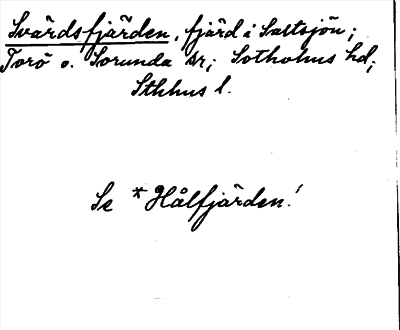 Svärdsfjärden, fjärd i Saltsjön;
Torö o. Sorunda sr; Sotholms hd;
Sthlms l.
Se *Hålfjärden!